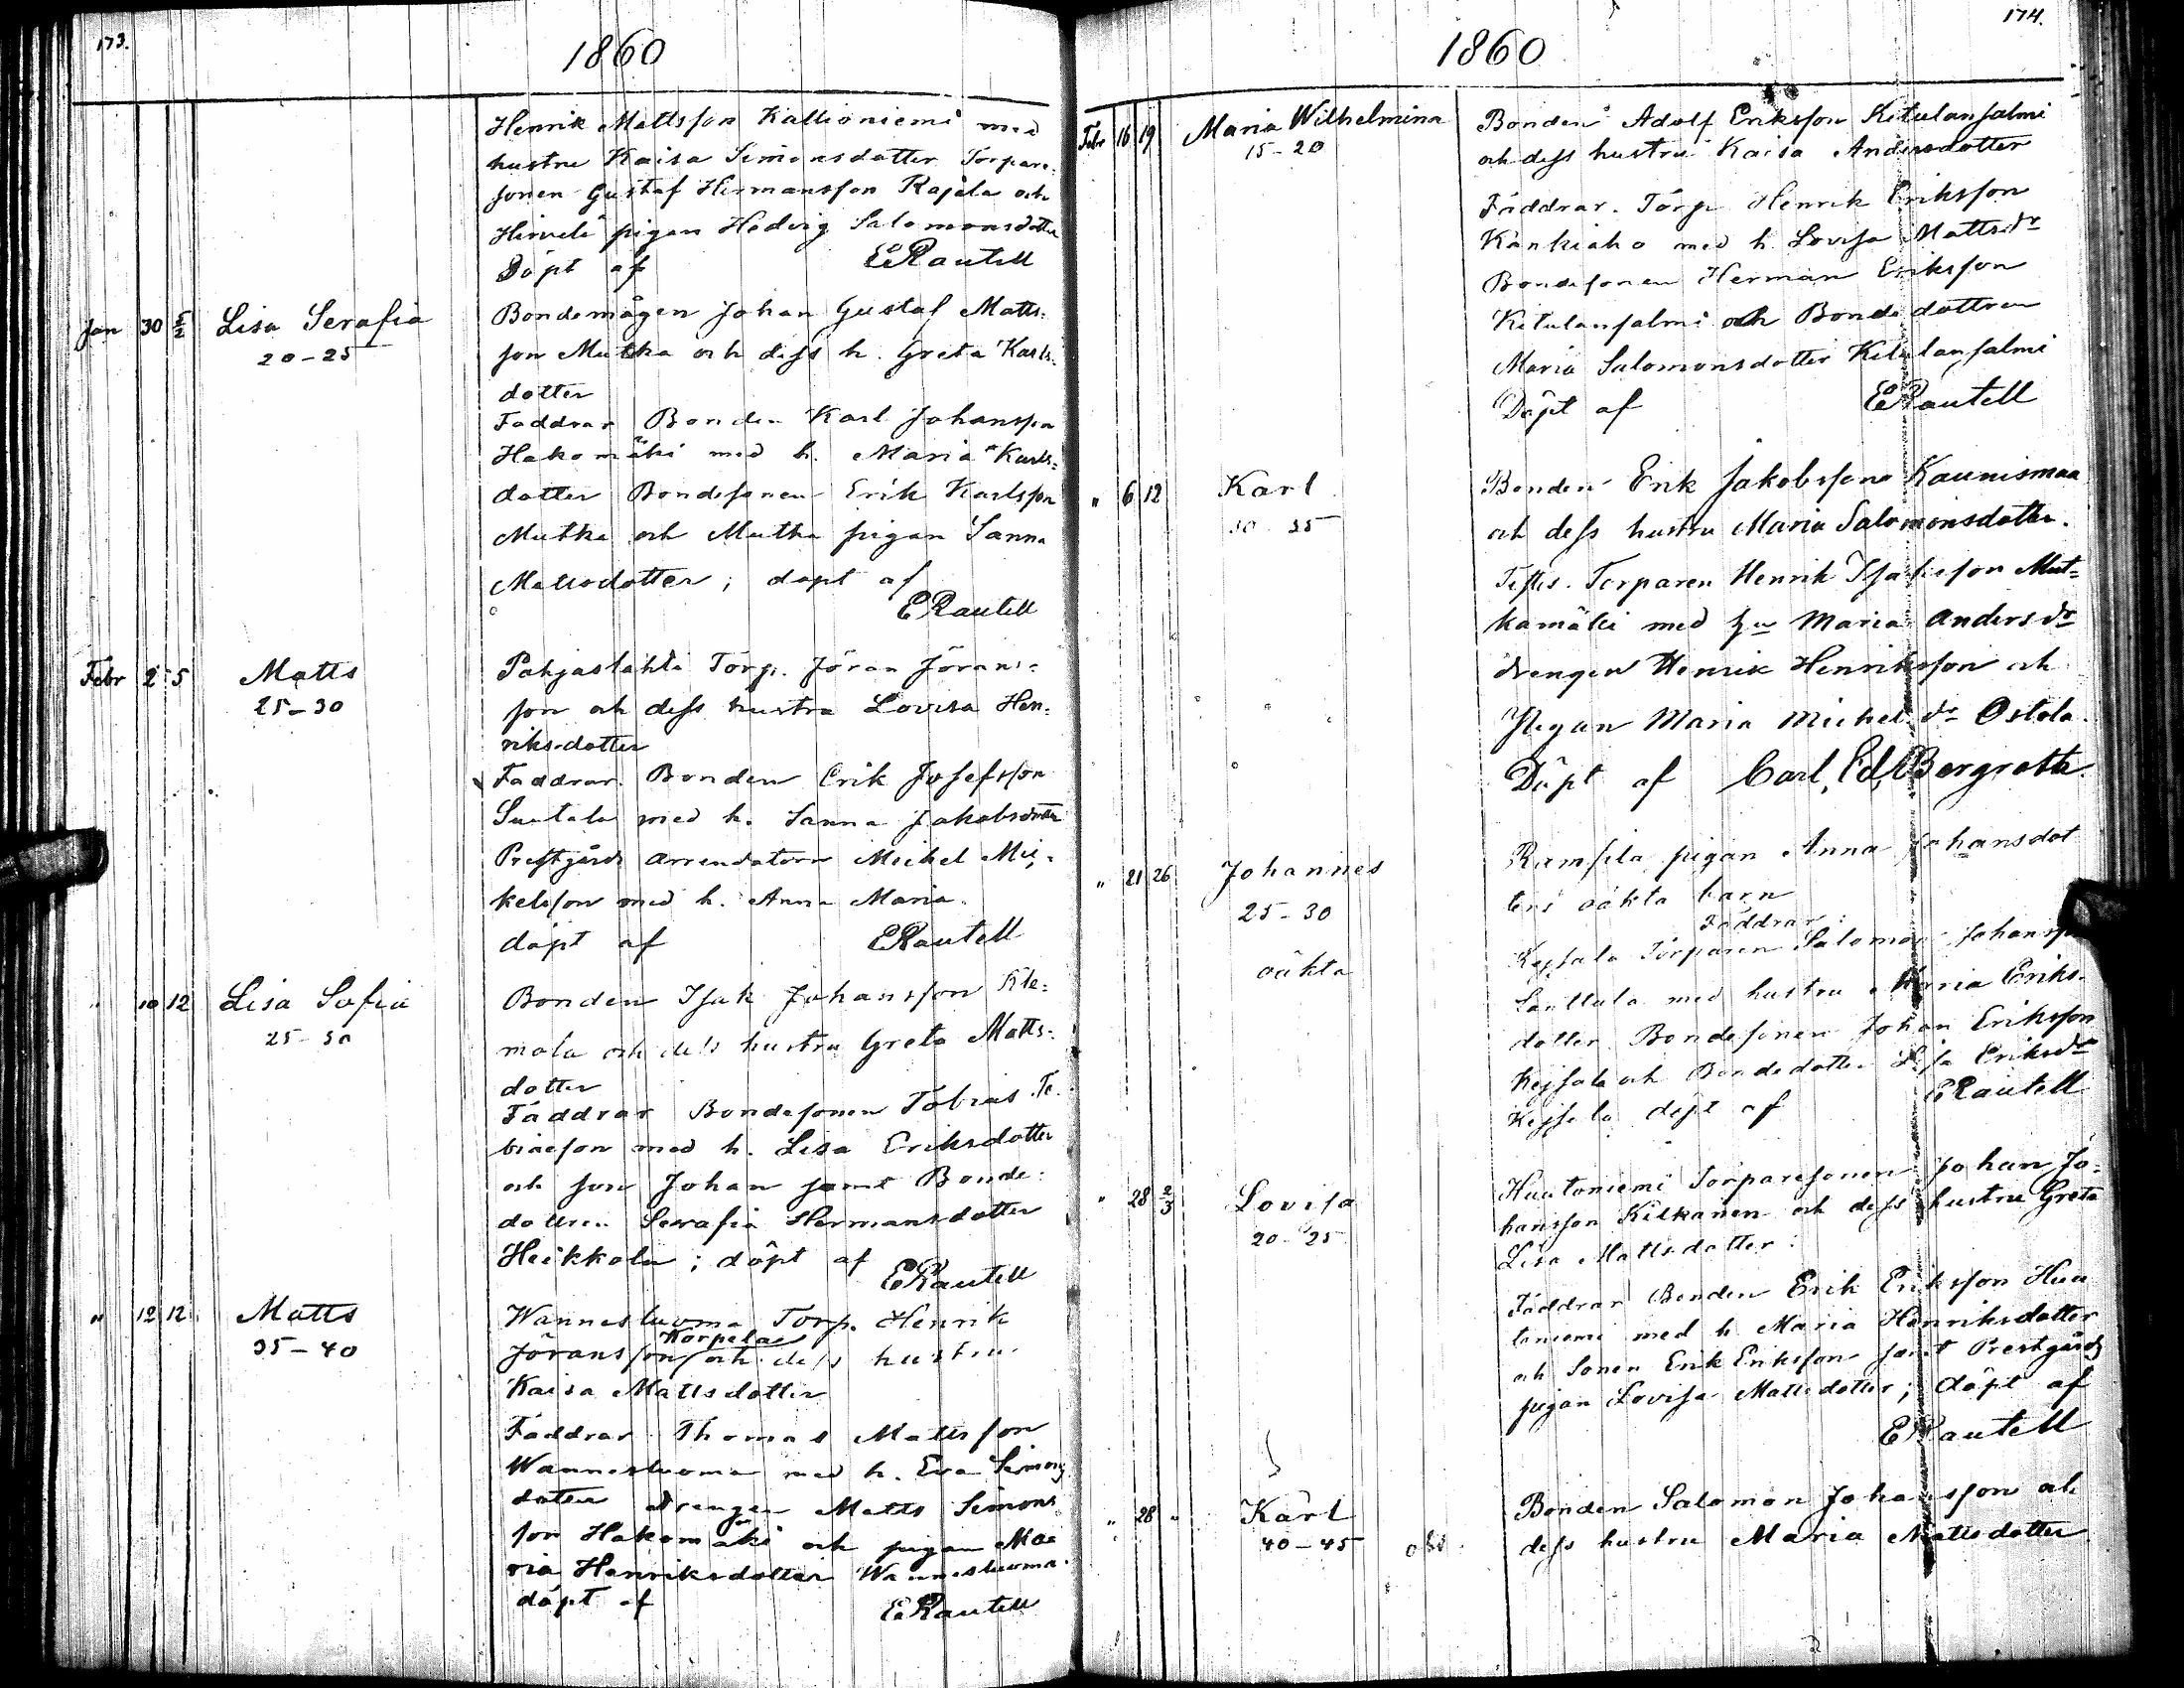 173.
1860
Henrik Mattsson Kallioniemi med
hustru Kaisa Simonsdotter Torpare-
sonen Gustaf Hermansson Rajala och
Hirvelä pigan Hedvig Salomonsdotter
Döpt af ERautell
Jan 30 5/2 Lisa Serafia Bondemågen Johan Gustaf Matts-
20-25 son Mutka och dess h. Greta Karls-
dotter
Faddrar Bonden Karl Johansson
Hakomäki med h. Maria Karls-
dotter Bondesonen Erik Karlsson
Mutka och Mutka pigan Sanna
Mattsdotter; döpt af
ERautell
Febr 2 5 Matts Pohjaslahti Torp. Jöran Jörans-
25-30 son och dess hustru Lovisa Hen-
riksdotter
Faddrar. Bonden Erik Josefsson
Suutala med h. Sanna Jakobsdotter
Prestgårds arrendatorn Michel Mi-
kelsson med h. Anna Maria
döpt af ERautell
" 10 12 Lisa Sofia Bonden Isak Johansson Kle-
25-30 mola och dess hustru Greta Matts-
dotter
Fäddrar Bondesonen Tobias To-
biasson med h. Lisa Eriksdotter
och son Johan samt Bonde-
dottren Serafia Hermansdotter
Heikkola; döpt af
ERautell
" 12 12 Matts Wannesluoma Torp. Henrik
Korpela
35-40 Jöransson och dess hustru
Kaisa Mattsdotter
Faddrar Thomas Mattsson
Wannesluoma med h. Eva Simons
dotter drengen Matts Simons
son Hakomäki och pigan Ma-
ria Henriksdotter Wannesluoma
döpt af ERautell
174.
1860
Febr 16 19 Maria Wilhelmina Bonden Adolf Eriksson Kitulansalmi
15-20 och dess hustru Kaisa Andersdotter
Fäddrar. Torp Henrik Eriksson
Kankiaho med h. Lovisa Mattsdr
Bondesonen Herman Eriksson
Kitulansalmi och Bondedottren
Maria Salomonsdotter Kitulansalmi
Döpt af ERautell
" 6 12 Karl Bonden Erik Jakobsson Kaunismaa
30-35 och dess hustru Maria Salomonsdotter.
Testes. Torparen Henrik Isaksson Mut-
kamäki med hu Maria Andersdr
drengen Henrik Henriksson och
Pigan Maria Michelsdr Ostola.
Döpt af Carl, Ed, Bergroth.
" 21 26 Johannes Ramsila pigan Anna Johansdot
25-30 ters oäkta barn
Fäddrar:
oäkta Kejsala Torparen Salomon Johansson
Santtula med hustru Maria Eriks-
dotter Bondesonen Johan Eriksson
Kejsala och Bondedotter Lisa Eriksdr
Kejsala döpt af ERautell
" 28 2/3 Lovisa Huutoniemi Torparesonen Johan Jo-
20-25 hansson Kilkanen och dess hustru Greta
Lisa Mattsdotter:
Fäddrar Bonden Erik Eriksson Huu
toniemi med h. Maria Henriksdotter
och Sonen Erik Eriksson samt Prestgårds
pigan Lovisa Mattsdotter; döpt af
ERautell
" 28 " Karl Bonden Salomon Johansson och
40-45 obs. dess hustru Maria Mattsdotter